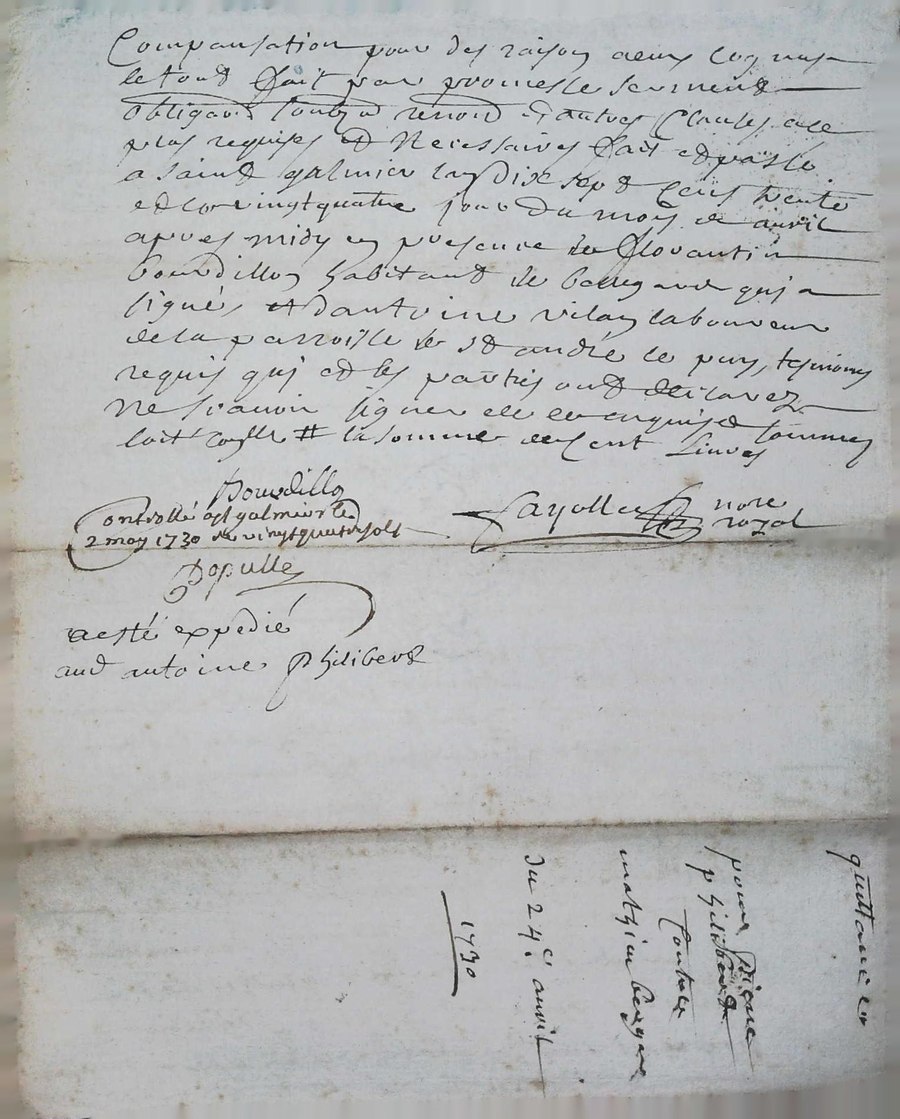 Compansation pour des raison a eux cognus
le tout fait par promesse serment
obligaon soubz renon et autres clauses a ce
plus requises et Necessaires fait et passé
a saint galmier lan dix sept Cens trente
et le vingtquatre jour du mois de avril
apres midy en presence de florantin
bourdillon habitant de qui a
signé, et dantoine vilan laboureur
de la parroisse de st andré le puy, tesmoins
requis qui et les parties ont declarez
Ne scavoir signer de ce enquis et sommes
soit # la somme de Cent livres
Bourdillon
Fayolle nore
royal
Controllé a st galmier le
2 may 1730 Re vingtquatre sols
Populle
a esté expedié
aud antoine philibert
quittance
pour
philibert
Contre
mathieu
du 24e. avril
1730